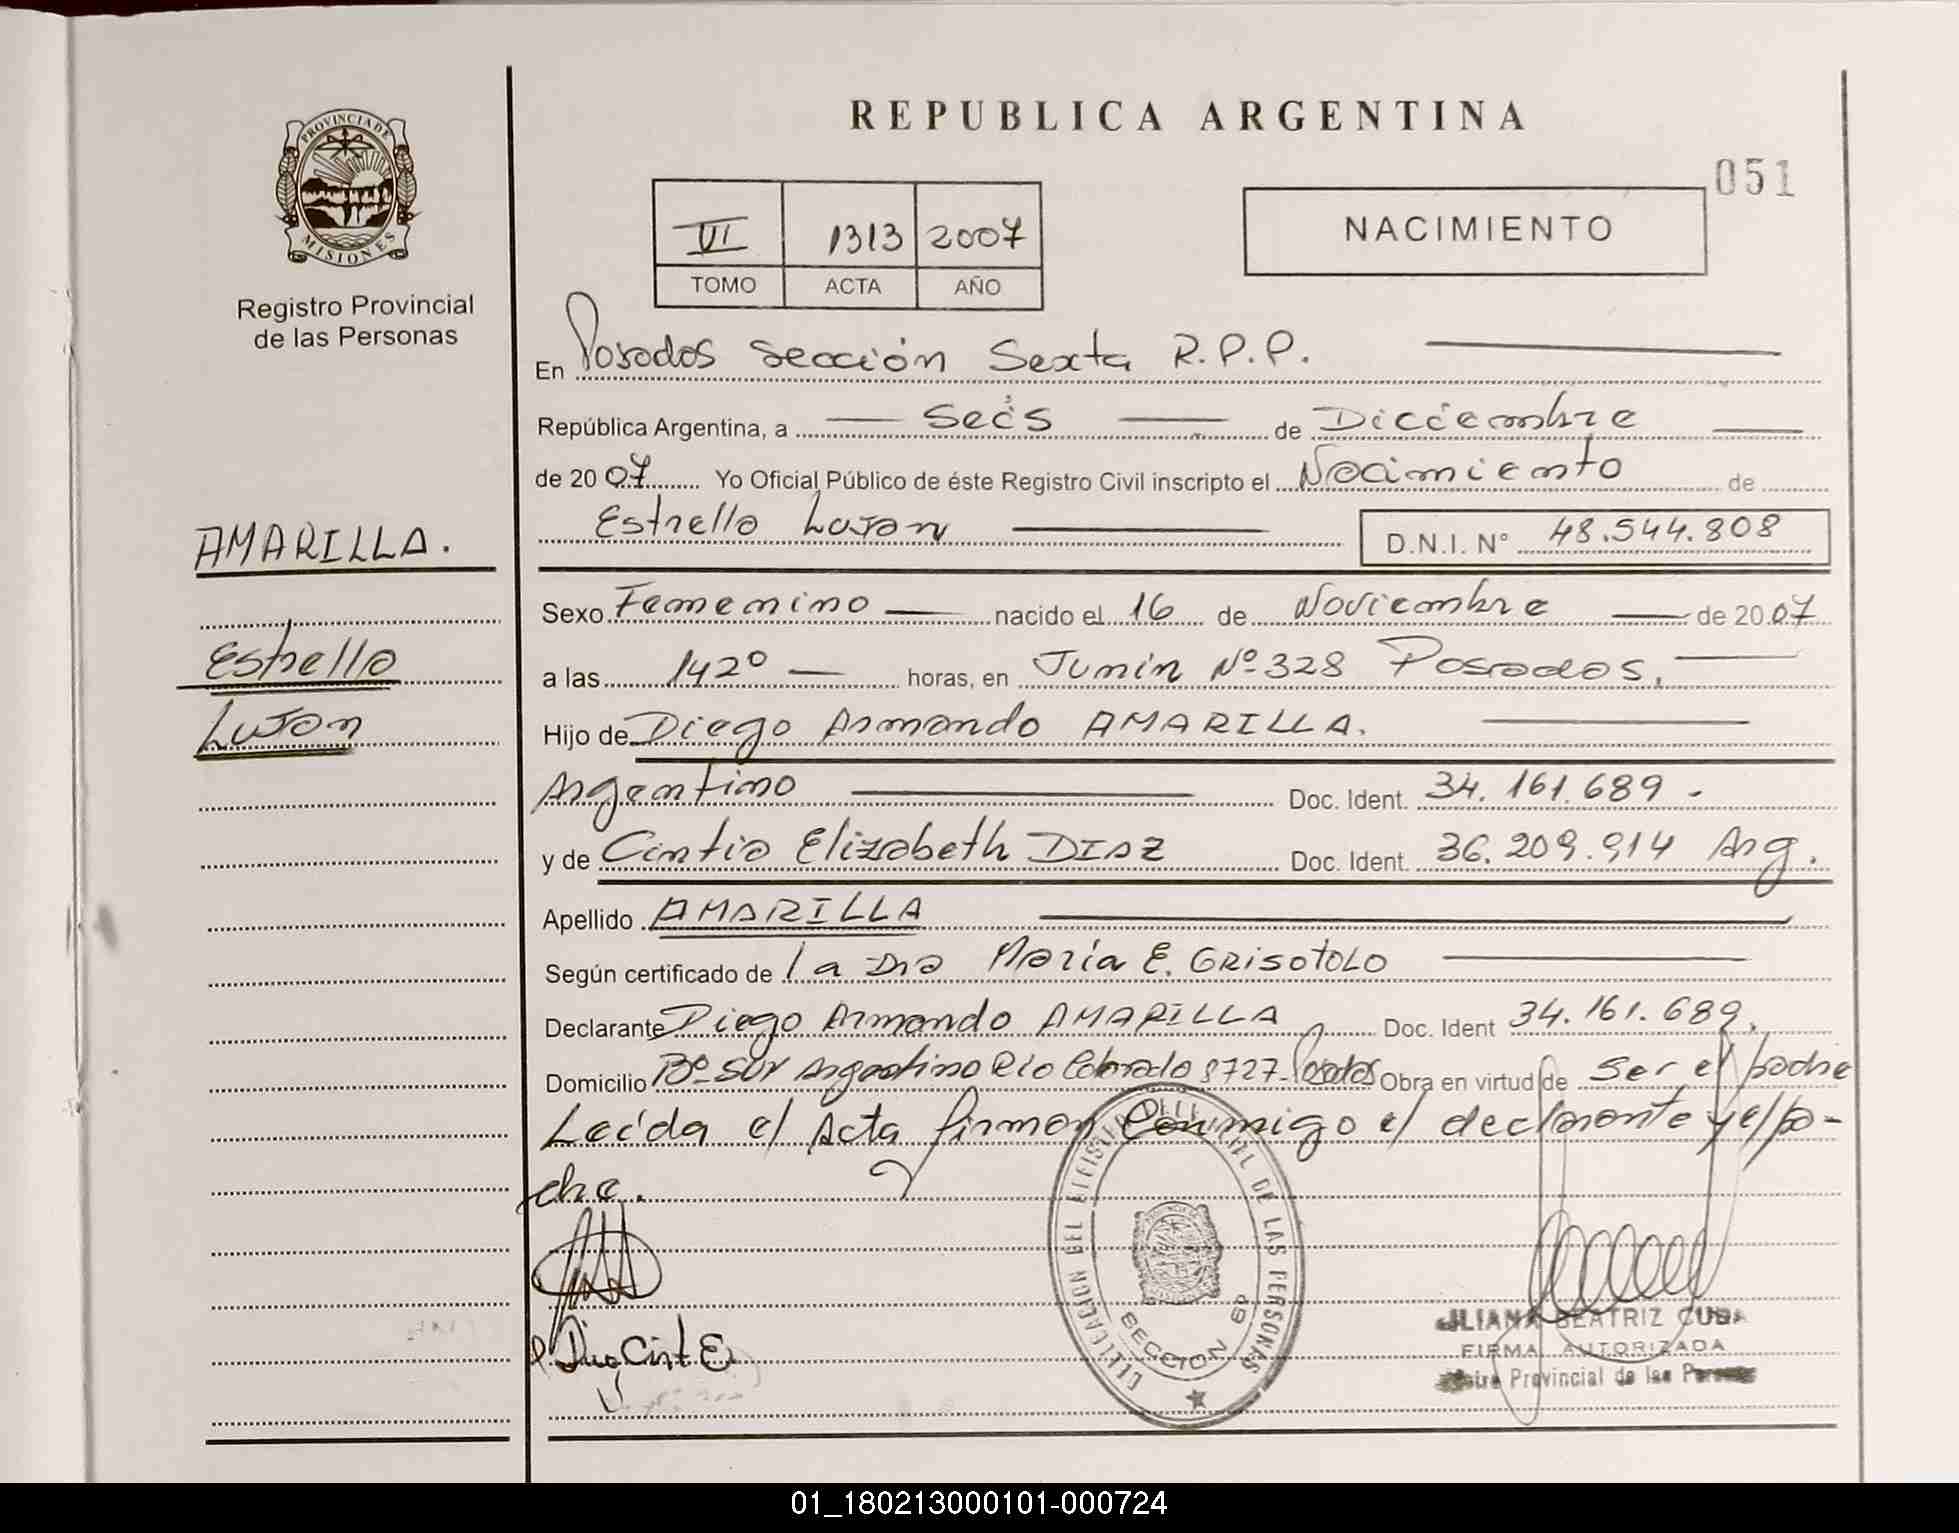 REPUBLICA ARGENTINA
051
PROVINCIA DE
MISIONES
Registro Provincial
de las Personas
VI 1313 2007
TOMO ACTA AÑO
NACIMIENTO
En Posadas Sección Sexta R.P.P.
República Argentina, a Seis de Diciembre
de 2007 Yo Oficial Público de éste Registro Civil inscripto el Nacimiento de
Estrella Lujan D.N.I. N° 48.544.808
AMARILLA.
Estrella
Lujan
Sexo Femenino nacido el 16 de Noviembre de 2007
a las 1420 horas, en Junin Nº 328 Posadas.
Hijo de Diego Armando AMARILLA.
Argentino Doc. Ident. 34.161.689.
y de Cintia Elizabeth DIAZ Doc. Ident. 36.209.914 Arg.
Apellido AMARILLA
Según certificado de la Dra María E. GRISOTOLO
Declarante Diego Armando AMARILLA Doc. Ident 34.161.689.
Domicilio Bº Sur Argentino Rio 8727 Posadas Obra en virtud de ser el padre
Leida el Acta firman Conmigo el declarante y el pa-
dre.
DEL DE LAS PERSONAS
SECCION
BEATRIZ CUBA
FIRMA AUTORIZADA
Provincial de las
01_180213000101-000724